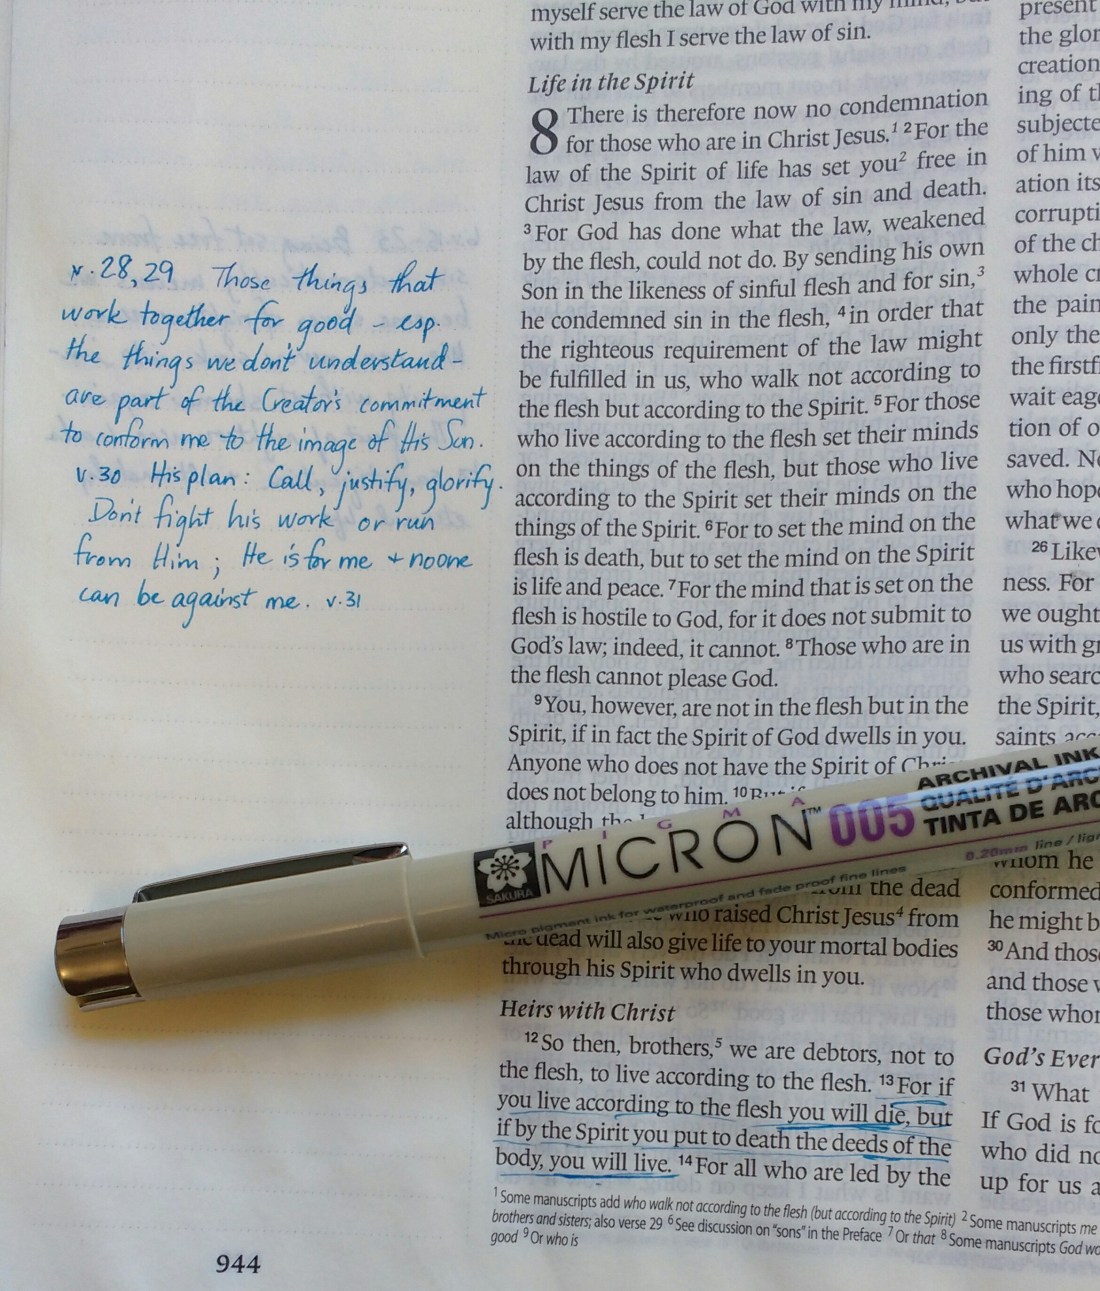 v.28,29 Those things that
work together for good - esp.
the things we don't understand -
are part of the Creator's commitment
to conform me to the image of His Son.
v.30 His plan: Call, justify, glorify.
Don't fight his work or run
from Him; He is for me + no one
can be against me. v.31
944
myself serve the law of God with my mind, but
with my flesh I serve the law of sin.
Life in the Spirit
8 There is therefore now no condemnation
for those who are in Christ Jesus.1 2For the
law of the Spirit of life has set you2 free in
Christ Jesus from the law of sin and death.
3For God has done what the law, weakened
by the flesh, could not do. By sending his own
Son in the likeness of sinful flesh and for sin,3
he condemned sin in the flesh, 4in order that
the righteous requirement of the law might
be fulfilled in us, who walk not according to
the flesh but according to the Spirit. 5For those
who live according to the flesh set their minds
on the things of the flesh, but those who live
according to the Spirit set their minds on the
things of the Spirit. 6For to set the mind on the
flesh is death, but to set the mind on the Spirit
is life and peace. 7For the mind that is set on the
flesh is hostile to God, for it does not submit to
God's law; indeed, it cannot. 8Those who are in
the flesh cannot please God.
9You, however, are not in the flesh but in the
Spirit, if in fact the Spirit of God dwells in you.
Anyone who does not have the Spirit of
does not belong to him. 10
although
the dead
who raised Christ Jesus4 from
the dead will also give life to your mortal bodies
through his Spirit who dwells in you.
Heirs with Christ
12So then, brothers,5 we are debtors, not to
the flesh, to live according to the flesh. 13For if
you live according to the flesh you will die, but
if by the Spirit you put to death the deeds of the
body, you will live. 14For all who are led by the
1 Some manuscripts add who walk not according to the flesh (but according to the Spirit) 2 Some manuscripts me
brothers and sisters; also verse 29 6 See discussion on "sons" in the Preface 7 Or that 8 Some manuscripts God wo
good 9 Or who is
present
the glor
creation
ing of th
subjecte
of him w
ation its
corrupti
of the ch
whole cr
the pain
only the
the firstf
wait eag
tion of o
saved. No
who hope
what we
26Likew
ness. For
we ought
us with gr
who searc
the Spirit,
saints
whom he
conformed
he might b
30And those
and those w
those whom
God's Ever
31 What
If God is fo
who did no
up for us a
SAKURA
PIGMA
MICRON™ 005
ARCHIVAL INK
QUALITÉ D'ARC
TINTA DE ARC
Micro pigment ink for waterproof and fade proof fine lines
0.20mm line / lign